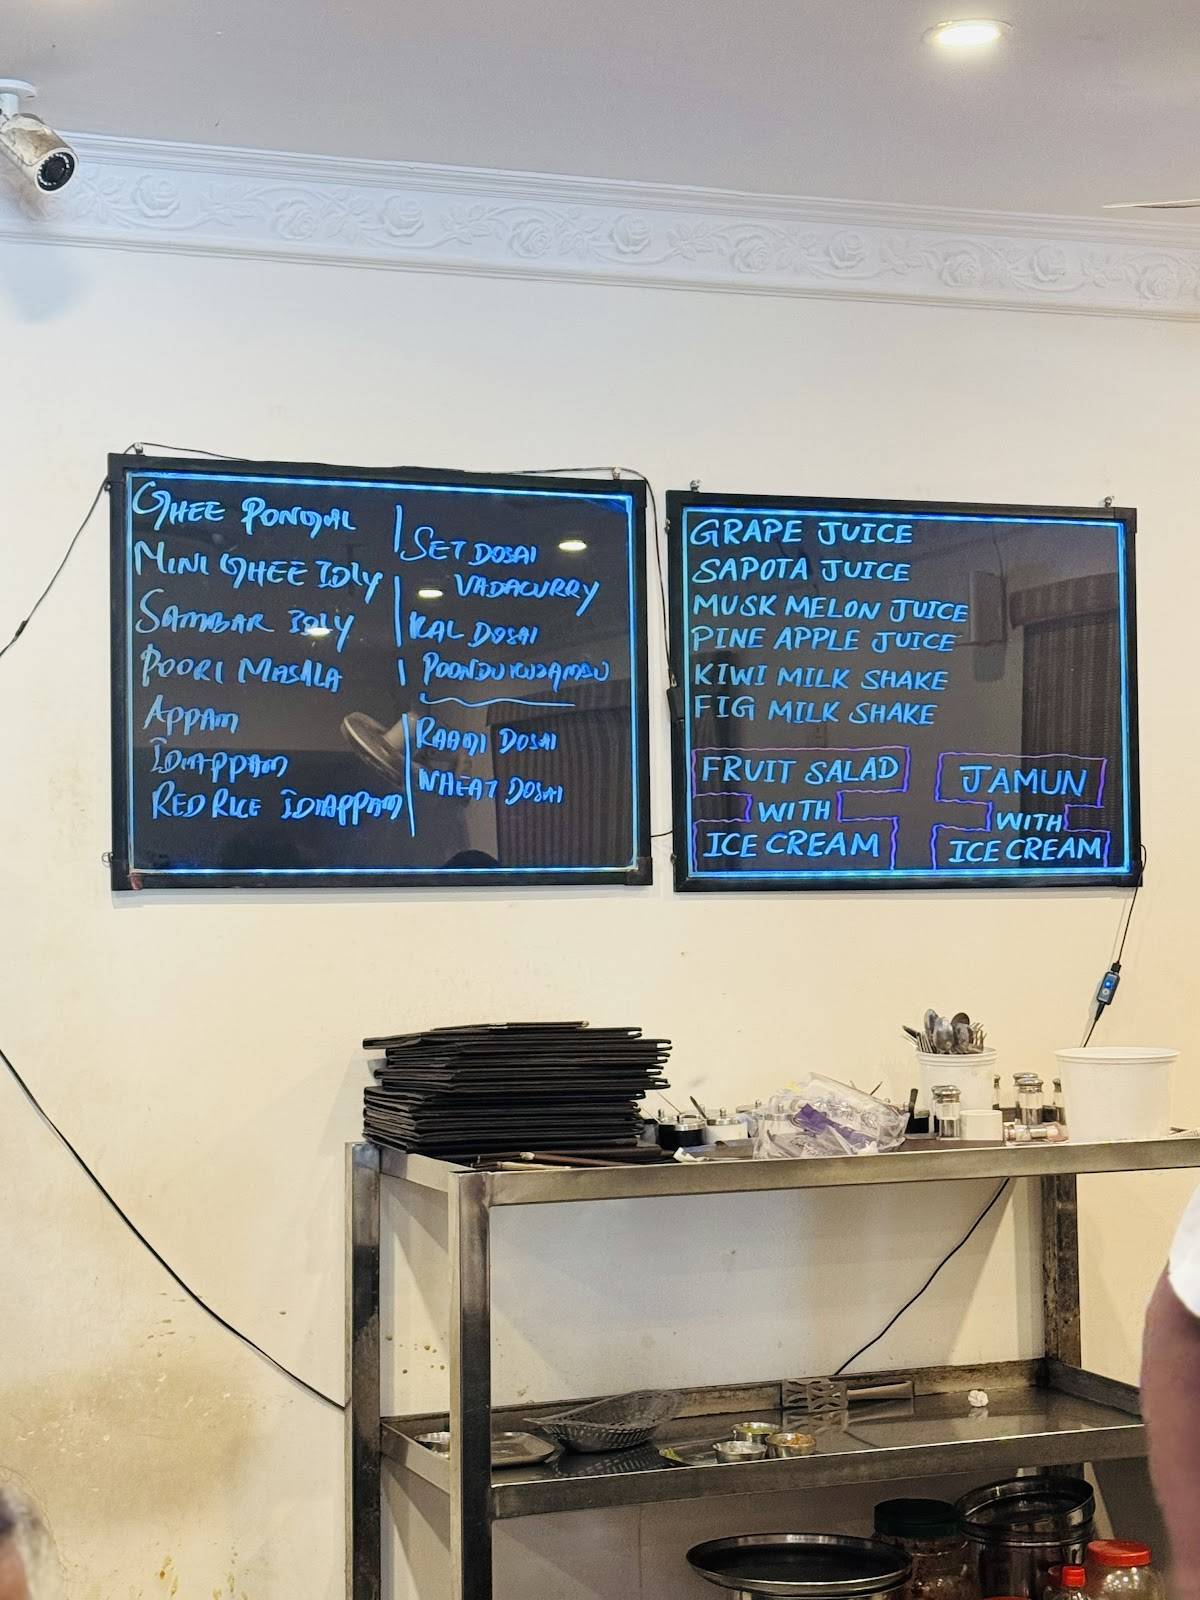 GHEE PONGAL
MINI GHEE IDLY
SAMBAR IDLY
POORI MASALA
APPAM
IDIAPPAM
RED RICE IDIAPPAM
SET DOSAI
VADACURRY
KAL DOSAI
POONDU KUZAMBU
RAAGI DOSAI
WHEAT DOSAI
GRAPE JUICE
SAPOTA JUICE
MUSK MELON JUICE
PINE APPLE JUICE
KIWI MILK SHAKE
FIG MILK SHAKE
FRUIT SALAD
WITH
ICE CREAM
JAMUN
WITH
ICE CREAM